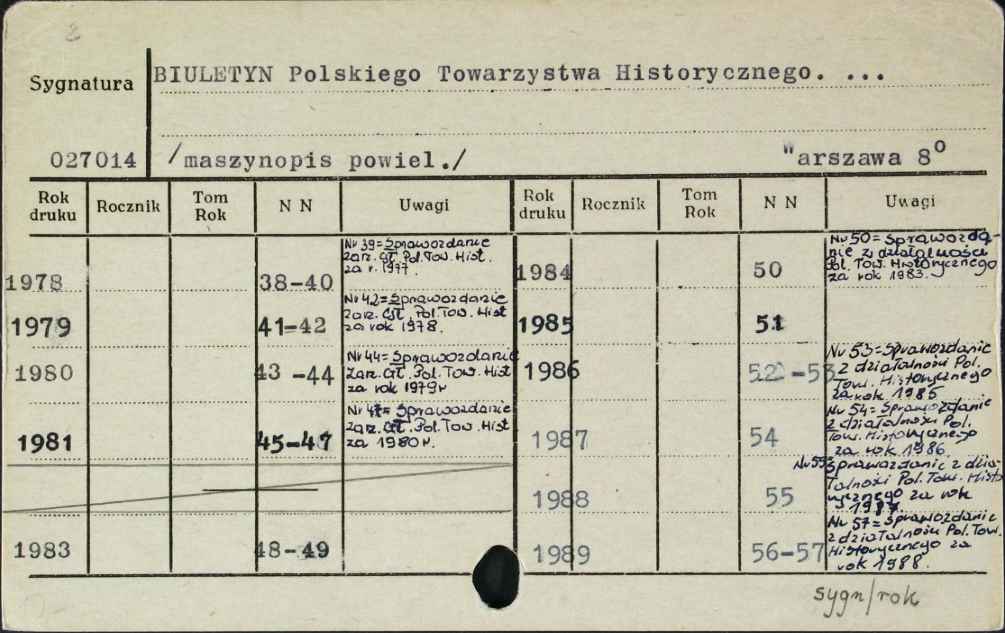 2
BIULETYN Polskiego Towarzystwa Historycznego. ...
Sygnatura
027014 /maszynopis powiel./ "arszawa 8°
Rok druku Rocznik Tom Rok N N Uwagi Rok druku Rocznik Tom Rok N N Uwagi
1978 38-40 Nr 39= Sprawozdanie
zarz. Gł. Pol. Tow. Hist.
za r. 1977.
1979 41-42 Nr 42= Sprawozdanie
zarz. Gł. Pol. Tow. Hist
za rok 1978.
1980 43-44 Nr 44= Sprawozdanie
zarz. Gł. Pol. Tow. Hist
za rok 1979r
1981 45-47 Nr 47= Sprawozdanie
zarz. Gł. Pol. Tow. Hist
za 1980 r.
1983 48-49
1984 50 Nr 50= Sprawozda-
nie z działalności
Pol. Tow. Historycznego
za rok 1983.
1985 51
1986 52-53 Nr 53= Sprawozdanie
z działalności Pol.
Tow. Historycznego
za rok 1985
1987 54 Nr 54= Sprawozdanie
z działalności Pol.
Tow. Historycznego
za rok 1986.
1988 55 Nr 55= Sprawozdanie z dzia-
łalności Pol. Tow. Histo
rycznego za rok
1987.
1989 56-57 Nr 57= Sprawozdanie
z działalności Pol. Tow.
Historycznego za
rok 1988.
sygn/rok